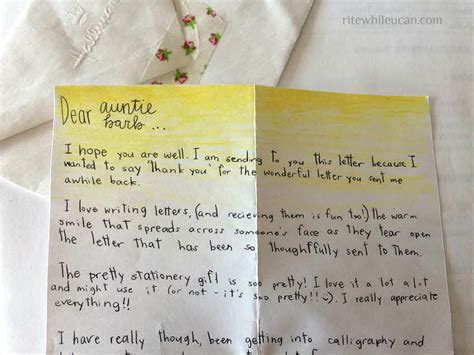 ritewhileucan.com
Dear auntie
barb...
I hope you are well. I am sending to you this letter because I
wanted to say "thank you" for the wonderful letter you sent me
awhile back.
I love writing letters, (and recieving them is fun too!) the warm
smile that spreads across someone's face as they tear open
the letter that has been so thoughtfully sent to them.
The pretty stationery gift is soo pretty! I love it a lot a lot
and might use it (or not - it's soo pretty!! :)). I really appreciate
everything!!
I have really though, been getting into calligraphy and